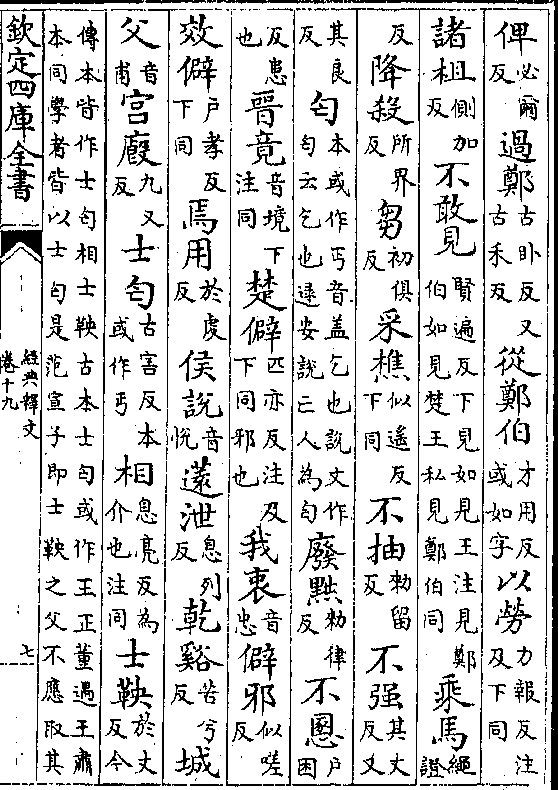 俾必爾反過鄭古卧反又古禾反從鄭伯才用反或如字以勞力報反注及下同
諸柤側加反不敢見賢遍反下見如見王注見鄭伯如見楚王私見鄭伯同乘馬繩證
反降殺所界反芻初俱反采樵似遙反下同不抽勑留反不强其丈反又
其良反匄本或作丐音盖乞也説文作匄云乞也逯安説亡人為匄廢黜勑律反不慁户困
反患也晉竟音境下注同楚僻匹亦反注及下同邪也我衷音忠僻邪似嗟反
效僻户孝反下同焉用於虔反侯說音悦薳泄息列反乾谿苦兮反城
父音甫宫廄九又反士匄古害反本或作丐相息亮反為介也注同士鞅於丈反今
傳本皆作士匄相士鞅古本士匄或作王正董遇王肅
本同學者皆以士匄是范宣子即士鞅之父不應取其
欽定四庫全書
經典釋文
卷十九
七